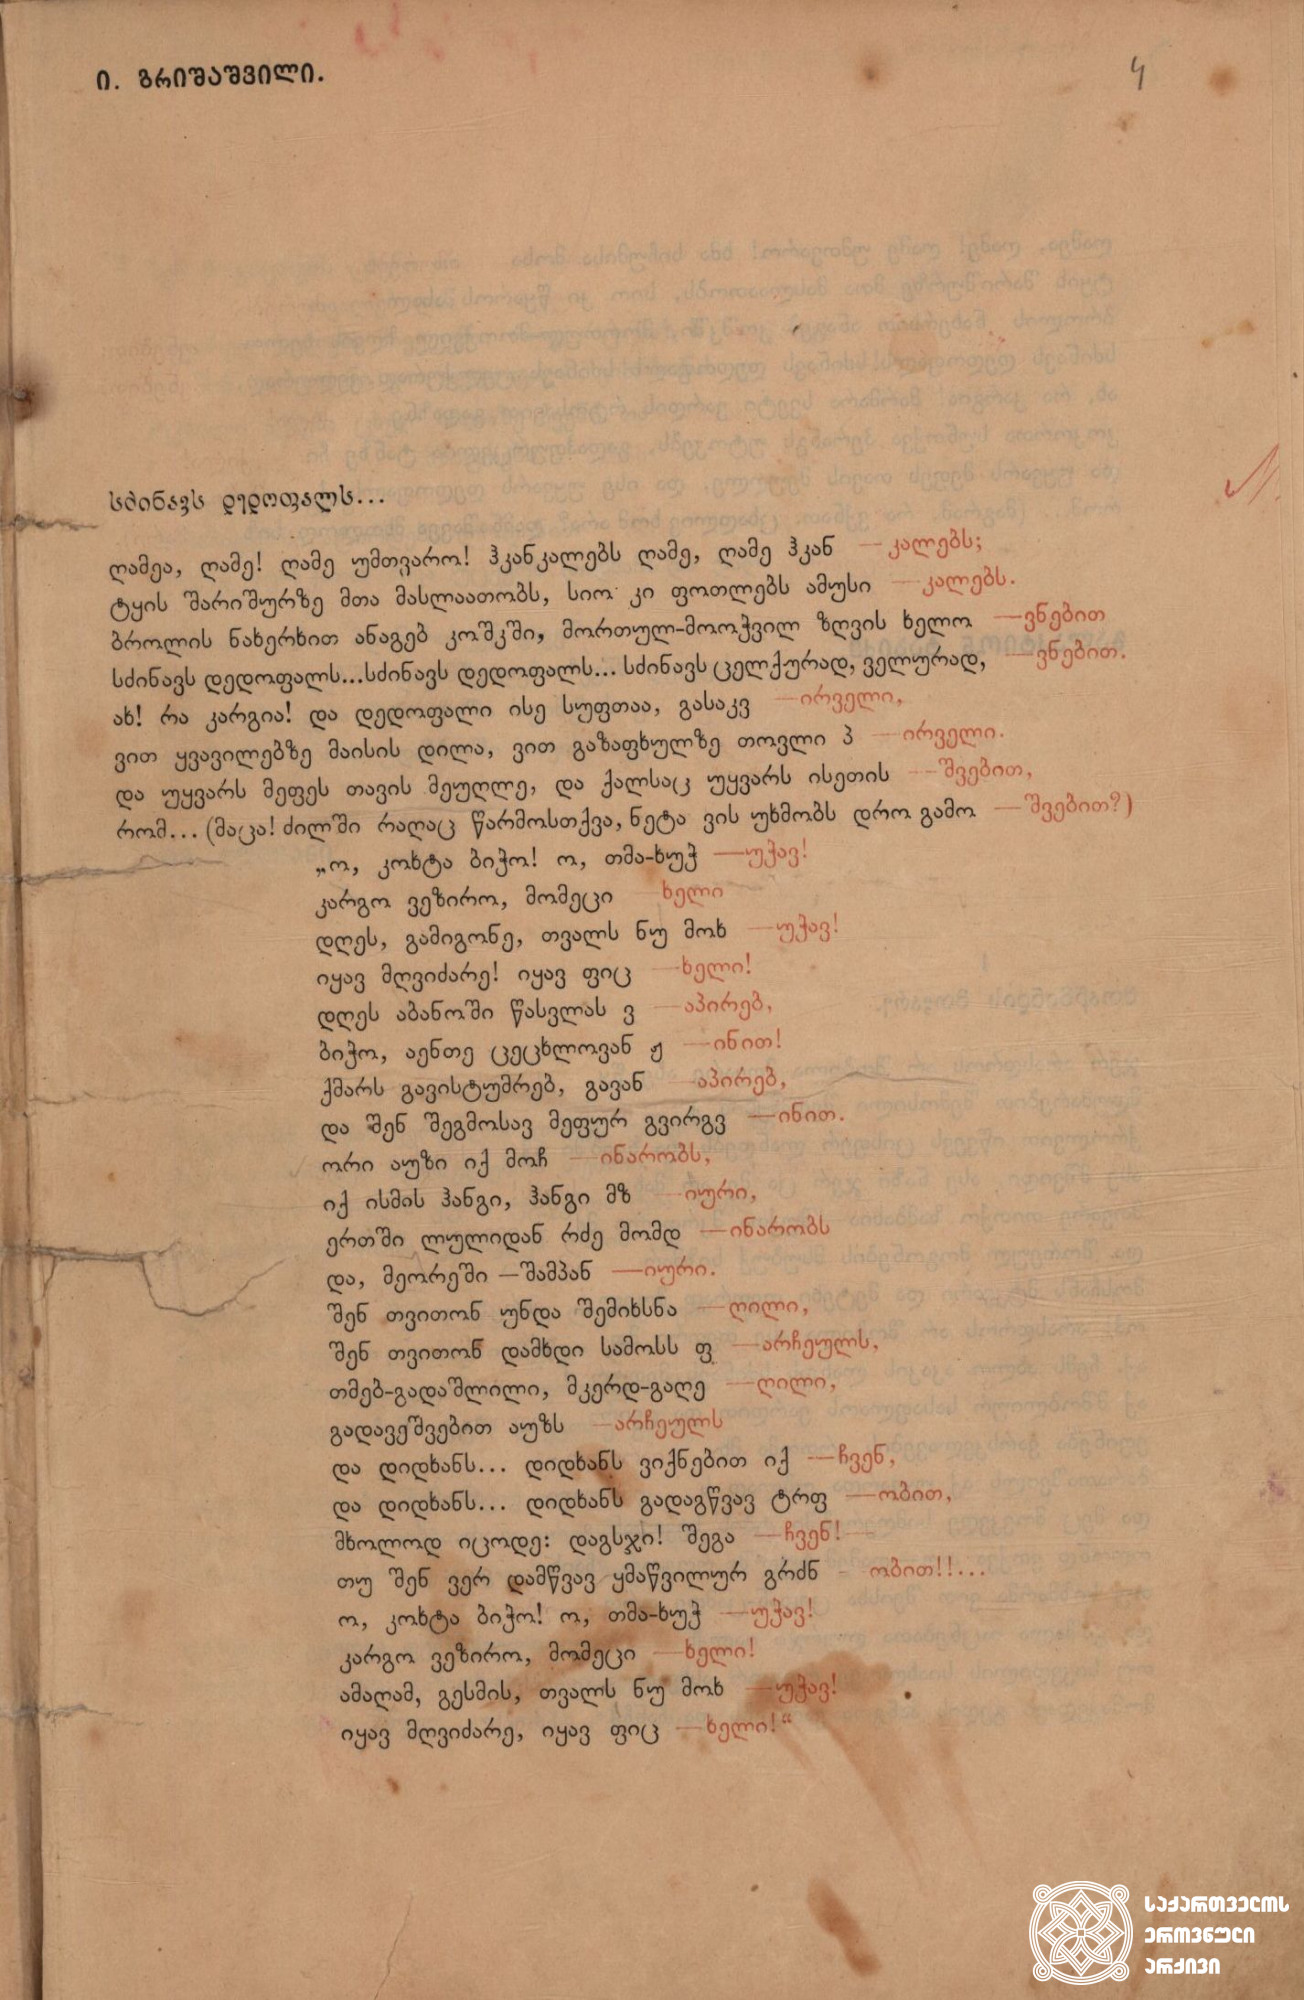 ი. გრიშაშვილი.
4
სძინავს დედოფალს...
ღამეა, ღამე! ღამე უმთვარო! ჰკანკალებს ღამე, ღამე ჰკან — კალებს;
ტყის შარიშურზე მთა მასლაათობს, სიო კი ფოთლებს ამუსი — კალებს.
ბროლის ნახერხით ანაგებ კოშკში, მორთულ-მოოჭვილ ზღვის ხელო — ვნებით
სძინავს დედოფალს... სძინავს დედოფალს... სძინავს ცელქურად, ველურად, — ვნებით.
ახ! რა კარგია! და დედოფალი ისე სუფთაა, გასაკვ — ირველი,
ვით ყვავილებზე მაისის დილა, ვით გაზაფხულზე თოვლი პ — ირველი.
და უყვარს მეფეს თავის მეუღლე, და ქალსაც უყვარს ისეთის — შვებით,
რომ... (მაცა! ძილში რაღაც წარმოსთქვა, ნეტა ვის უხმობს დრო გამო — შვებით?)
„ო, კოხტა ბიჭო! ო, თმა-ხუჭ — უჭავ!
კარგო ვეზირო, მომეცი — ხელი
დღეს, გამიგონე, თვალს ნუ მოხ — უჭავ!
იყავ მღვიძარე! იყავ ფიც — ხელი!
დღეს აბანოში წასვლას ვ — აპირებ,
ბიჭო, აენთე ცეცხლოვან ჟ — ინით!
ქმარს გავისტუმრებ, გავან — აპირებ,
და შენ შეგმოსავ მეფურ გვირგვ — ინით.
ორი აუზი იქ მოჩ — ინარობს,
იქ ისმის ჰანგი, ჰანგი მზ — იური,
ერთში ლულიდან რძე მომდ — ინარობს
და, მეორეში — შამპან — იური.
შენ თვითონ უნდა შემიხსნა — ღილი,
შენ თვითონ დამხდი სამოსს ფ — არჩეულს,
თმებ-გადაშლილი, მკერდ-გაღე — ღილი,
გადავეშვებით აუზს — არჩეულს
და დიდხანს... დიდხანს ვიქნებით იქ — ჩვენ,
და დიდხანს... დიდხანს გადაგწვავ ტრფ — ობით,
მხოლოდ იცოდე: დაგსჯი! შეგა — ჩვენ! —
თუ შენ ვერ დამწვავ ყმაწვილურ გრძნ - ობით!!...
ო, კოხტა ბიჭო! ო, თმა-ხუჭ — უჭავ!
კარგო ვეზირო, მომეცი — ხელი!
ამაღამ, გესმის, თვალს ნუ მოხ — უჭავ!
იყავ მღვიძარე, იყავ ფიც — ხელი!“
საქართველოს
ეროვნული
არქივი